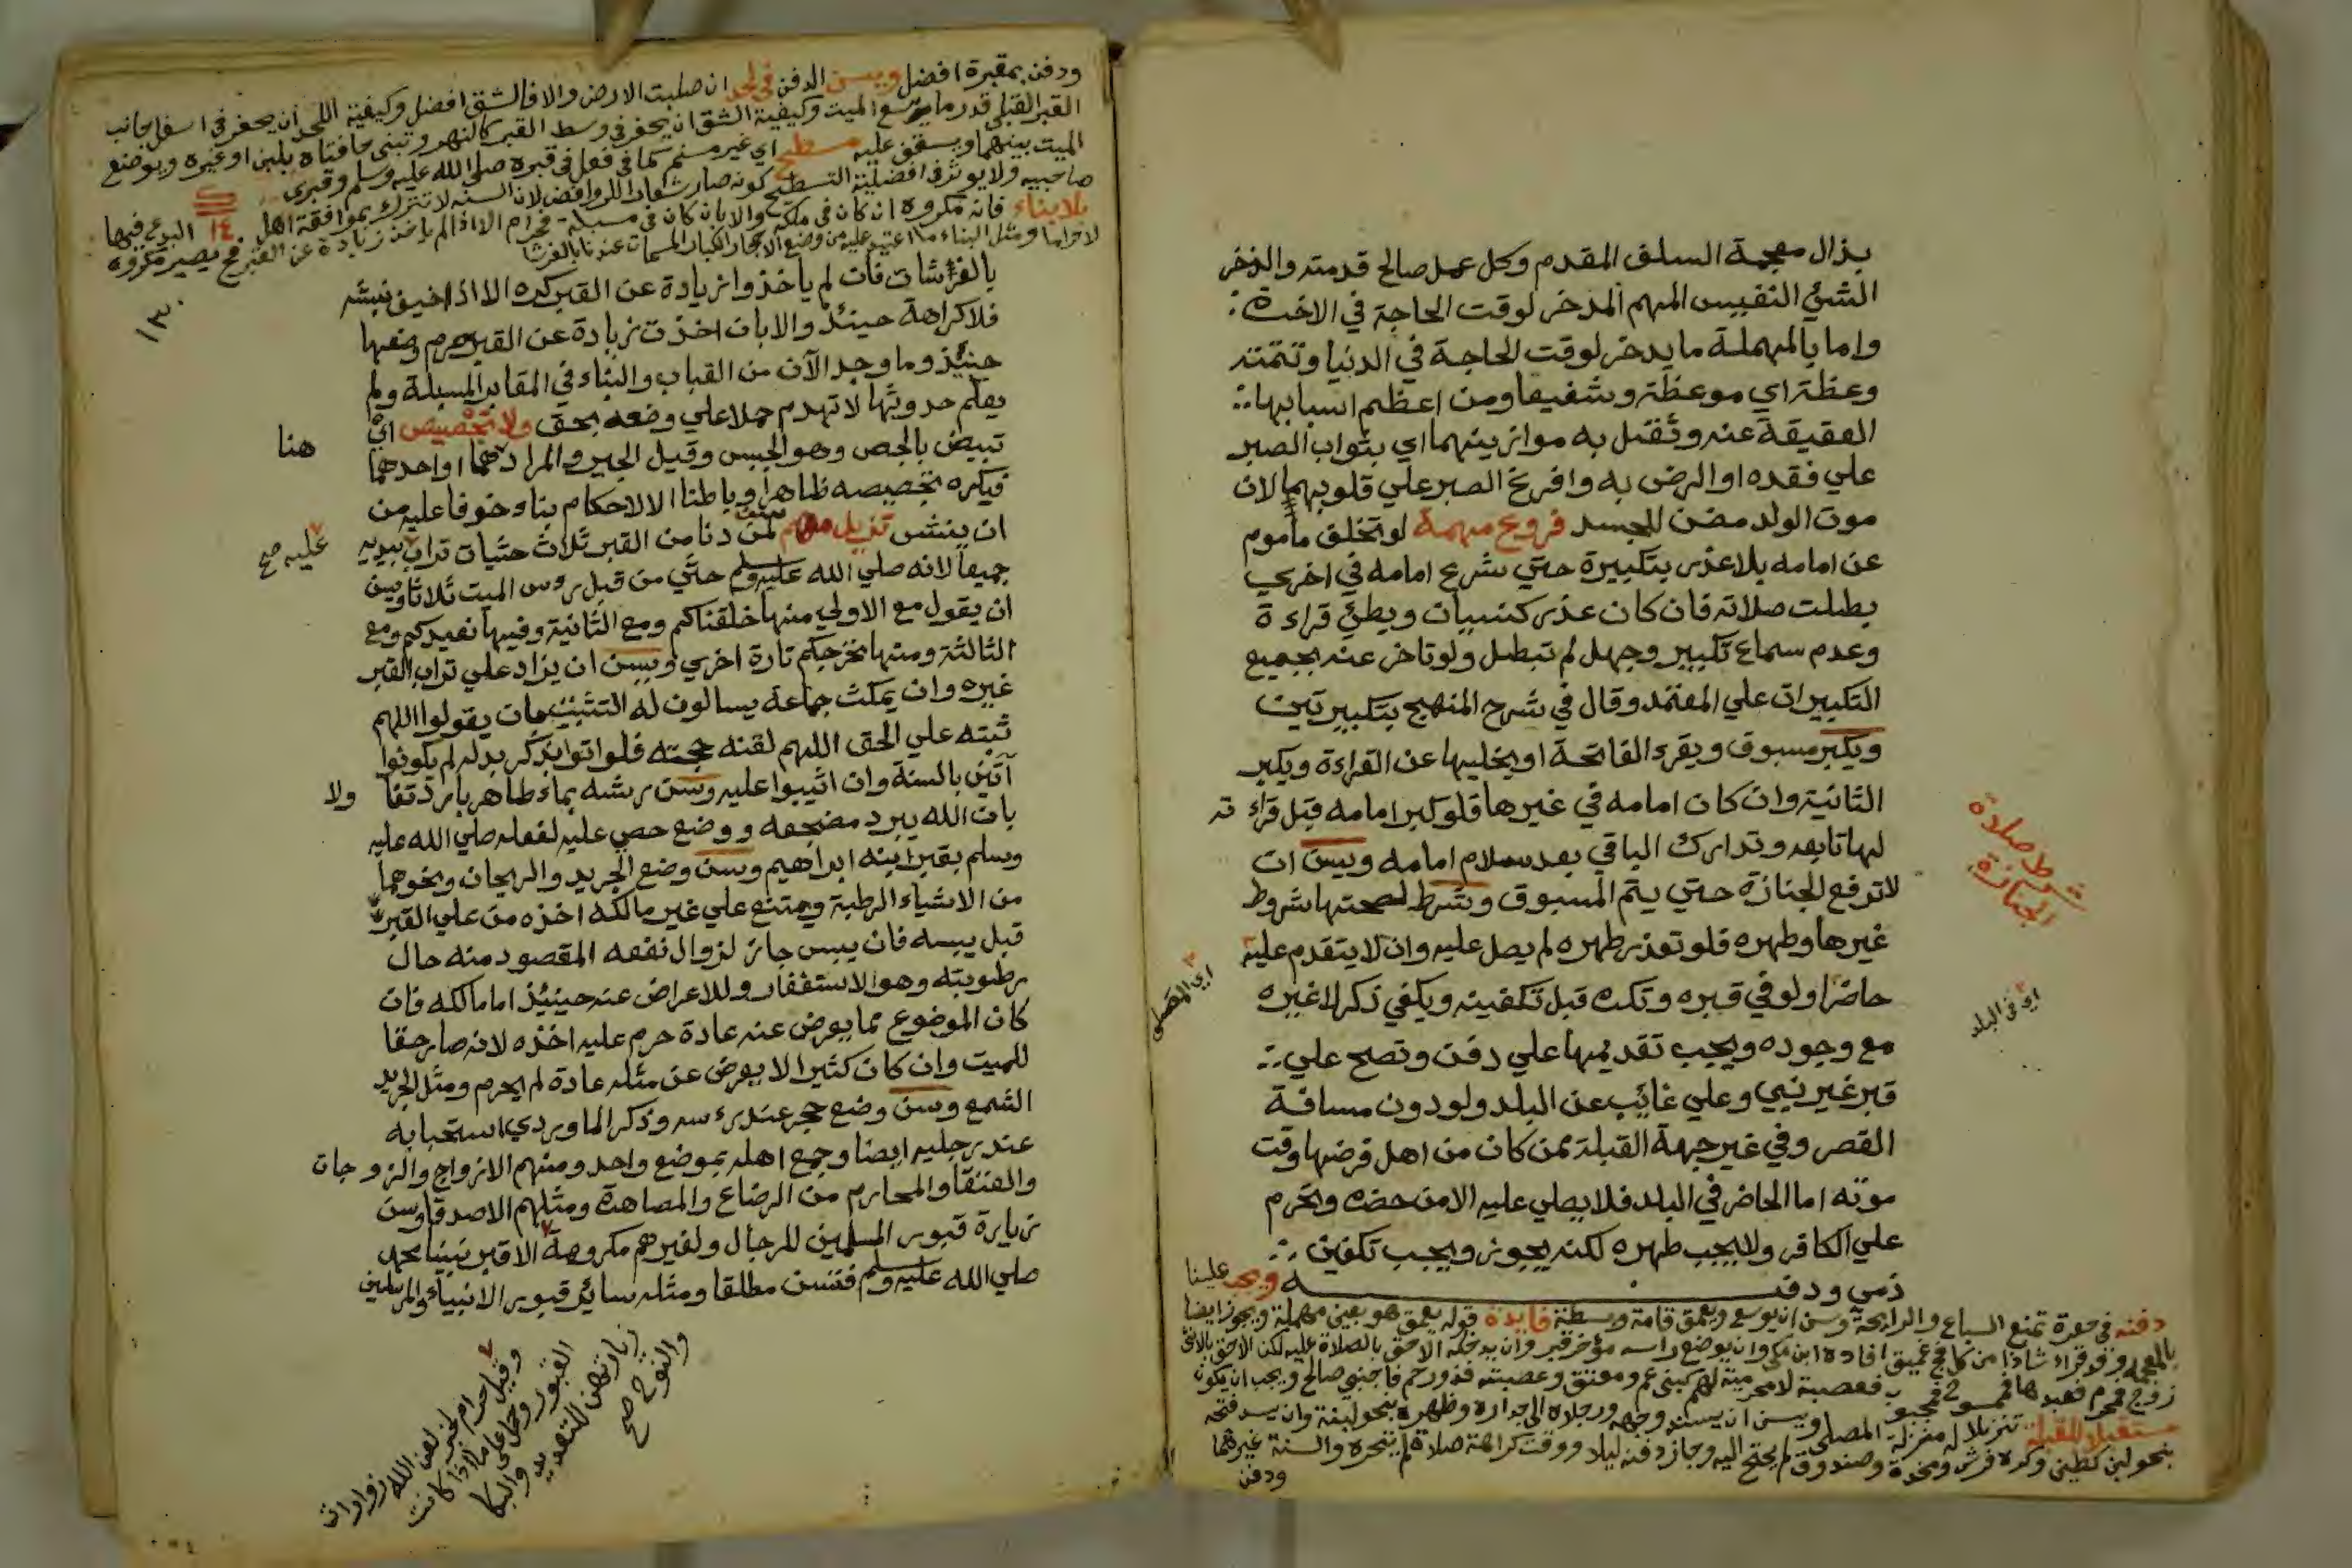 بذال معجمة السلف المقدم وكل عمل صالح قدمته والذخر
الشئ النفيس المهم المذخر لوقت الحاجة في الاخرة
واما بالمهملة ما يدخر لوقت الحاجة في الدنيا وتتمته
وعظة اي موعظة وشفيعا ومن اعظم اسبابها
العقيقة عنه وثقل به موازينهما اي بثواب الصبر
علي فقده او الرضى به وافرغ الصبر علي قلوبهما لان
موت الولد مضن للجسد فروع مهمة لو تخلف ماموم
عن امامه بلا عذر بتكبيرة حتي شرع امامه في اخري
بطلت صلاته فان كان عذر كنسيان وبطئ قراءة
وعدم سماع تكبير وجهل لم تبطل ولو تاخر عنه بجميع
التكبيرات علي المعتمد وقال في شرح المنهج بتكبيرتين
ويكبر مسبوق ويقرء الفاتحة او يخليها عن القراءة ويكبر
الثانية وان كان امامه في غيرها فلو كبر امامه قبل قراءته
لها تابعه وتدارك الباقي بعد سلام امامه ويسن ان
لا ترفع الجنازة حتي يتم المسبوق وشرط لصحتها شروط
غيرها وطهره فلو تعذر طهره لم يصل عليه وان لا يتقدم عليه
حاضرا ولو في قبره وتكره قبل تكفينه ويكفي ذكر لا غيره
مع وجوده ويجب تقديمها علي دفن وتصح علي
قبر غير نبي وعلي غائب عن البلد ولو دون مسافة
القصر وفي غير جهة القبلة ممن كان من اهل فرضها وقت
موته اما الحاضر في البلد فلا يصلي عليه الا من حضره وتحرم
علي الكافر ولا يجب طهره لكنه يجوز ويجب تكفين
ذمي ودفنه ويجب علينا
دفنه في حفرة تمنع السباع والرايحة وسن ان يوسع ويعمق قامة وبسطة فايدة قوله يعمق هو بعين مهملة ويجوز ايضا
بالمعجمة وقد قراء شاذا من كل فج غميق افاده ابن مكي وان يوضع راسه مؤخر قبر وان يدخله الاحق بالصلاة عليه لكن الاحق بالانثى
زوج فمحرم فعبدها فممسوح فمجبوب فعصبة لا محرمية لهم كبني عم ومعتق وعصبته فذو رحم فاجنبي صالح ويجب ان يكون
مستقبلا للقبلة تنزيلا له منزلة المصلي ويسن ان يسند وجهه ورجلاه الى جداره وظهره بنحو لبنة وان يسد فتحه
بنحو لبن كطين وكره فرش ومخدة وصندوق لم يحتج اليه وجاز دفنه ليلا ووقت كراهة صلاة لم يتحره والسنة غيرها
ودفن
شرط صلاة
الجنازة
اي في البلد
اي المصلى
ودفن بمقبرة افضل ويسن الدفن في لحد ان صلبت الارض والا فالشق افضل وكيفية اللحد ان يحفر في اسفل جانب
القبر القبلي قدر ما يسع الميت وكيفية الشق ان يحفر في وسط القبر كالنهر وتبنى حافتاه بلبن او غيره ويوضع
الميت بينهما ويسقف عليه مسطح اي غير مسنم كما فعل في قبره صلى الله عليه وسلم وقبري
صاحبيه ولا يؤثر في افضلية التسطيح كونه صار شعار الروافض لان السنة لا تترك بموافقة اهل البدع فيها
بلا بناء فانه مكروه ان كان في ملكه والا بان كان في مسبلة فحرام الا اذا لم ياخذ زيادة عن القبر فح يصير مكروه
لا حراما ومثل البناء ما اعتيد عليه من وضع الاحجار الكبار المسمات عندنا بالفرشا
بالفرشات فان لم ياخذوا زيادة عن القبر كره الا اذا خيف نبشه
فلا كراهة حينئذ والا بان اخذت زيادة عن القبر حرم وضعها
حينئذ وما وجد الآن من القباب والبناء في المقابر المسبلة ولم
يعلم حدوثها لا تهدم حملا علي وضعه بحق ولا تجصيص اي
تبيض بالجص وهو الجبس وقيل الجير والمراد هما او احدهما
فيكره تجصيصه ظاهرا وباطنا الا لاحكام بناء وخوفا عليه من
ان ينبش تذييل مهم لمن دنا من القبر ثلاث حثيات تراب بيديه
جميعا لانه صلي الله عليه وسلم حثي من قبل روس الميت ثلاثا ويسن
ان يقول مع الاولي منها خلقناكم ومع الثانية وفيها نعيدكم ومع
الثالثة ومنها نخرجكم تارة اخري ويسن ان يزاد علي تراب القبر
غيره وان يمكث جماعة يسالون له التثبيت بان يقولوا اللهم
ثبته علي الحق اللهم لقنه حجته فلو اتوا بذكر بدله لم يكونوا
آتين بالسنة وان اثيبوا عليه وسن رشه بماء طاهر بارد تفا ولا
بان الله يبرد مضجعه ووضع حصى عليه لفعله صلي الله عليه
وسلم بقبر ابنه ابراهيم وسن وضع الجريد والريحان ونحوهما
من الاشياء الرطبة ويمتنع علي غير مالكه اخذه من علي القبر
قبل يبسه فان يبس جاز لزوال نفعه المقصود منه حال
رطوبته وهو الاستغفار وللاعراض عنه حينئذ اما مالكه فان
كان الموضوع مما يعرض عنه عادة حرم عليه اخذه لانه صار حقا
للميت وان كان كثيرا لا يعرض عن مثله عادة لم يحرم ومثل الجريد
الشمع وسن وضع حجر عند رءسه وذكر الماوردي استحبابه
عند رجليه ايضا وجمع اهله بموضع واحد ومنهم الازواج والزوجات
والعتقا والمحارم من الرضاع والمصاهرة ومثلهم الاصدقا وسن
زيارة قبور المسلمين للرجال ولغيرهم مكروهة الا قبر نبينا محمد
صلي الله عليه وسلم فتسن مطلقا ومثله سائر قبور الانبياء والمرسلين
١٣٠
هنا
عليه صح
وقيل حرام لخبر لعن الله زوارات
القبور وحمل على ما اذا كانت
زيارتهن للتعديد والبكا
والنوح صح